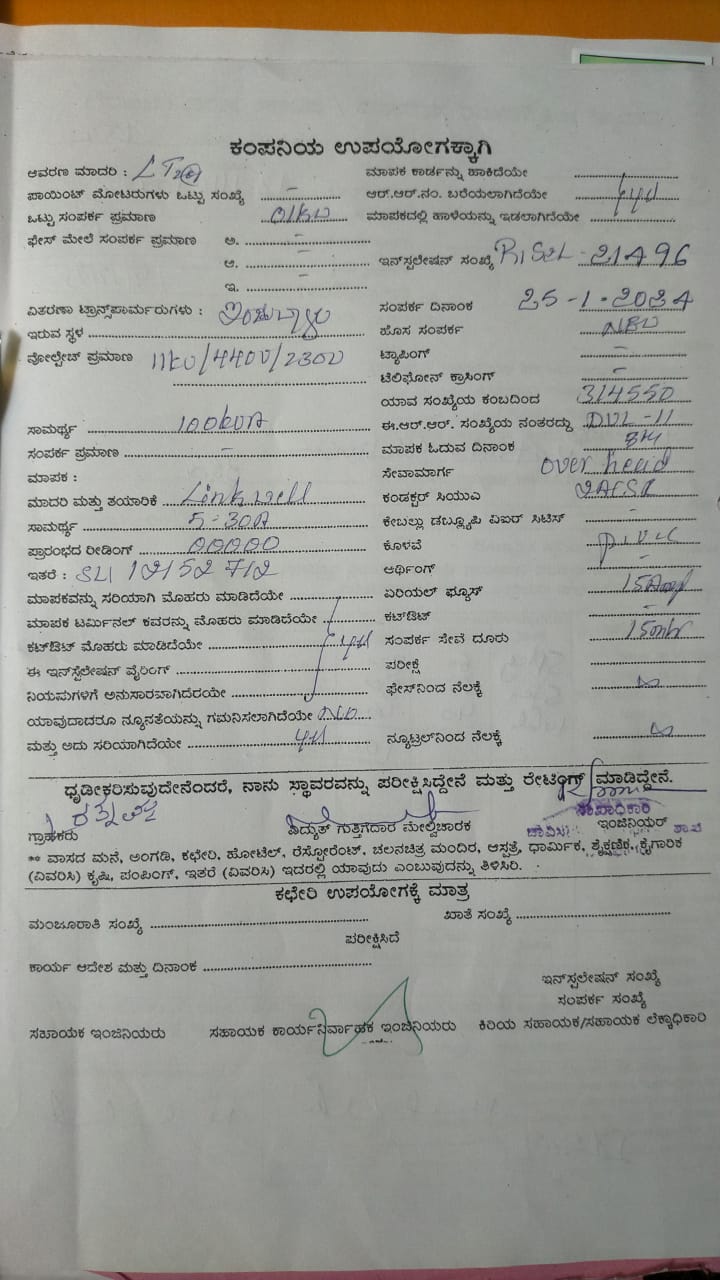 ಕಂಪನಿಯ ಉಪಯೋಗಕ್ಕಾಗಿ
ಆವರಣ ಮಾದರಿ : LT2 ಮಾಪಕ ಕಾರ್ಡನ್ನು ಹಾಕಿದೆಯೇ
ಪಾಯಿಂಟ್ ಮೋಟರುಗಳು ಒಟ್ಟು ಸಂಖ್ಯೆ - ಆರ್.ಆರ್.ನಂ. ಬರೆಯಲಾಗಿದೆಯೇ
ಒಟ್ಟು ಸಂಪರ್ಕ ಪ್ರಮಾಣ ಮಾಪಕದಲ್ಲಿ ಹಾಳೆಯನ್ನು ಇಡಲಾಗಿದೆಯೇ
ಫೇಸ್ ಮೇಲೆ ಸಂಪರ್ಕ ಪ್ರಮಾಣ ಅ. -
ಆ. - ಇನ್‌ಸ್ಟಲೇಷನ್ ಸಂಖ್ಯೆ 21496
ಇ. -
ವಿತರಣಾ ಟ್ರಾನ್ಸ್‌ಫಾರ್ಮರುಗಳು : ಸಂಪರ್ಕ ದಿನಾಂಕ 25-1-2024
ಇರುವ ಸ್ಥಳ ಹೊಸ ಸಂಪರ್ಕ NEW
ವೋಲ್ಟೇಜ್ ಪ್ರಮಾಣ 11KV/440V/230V ಟ್ಯಾಪಿಂಗ್ -
ಟೆಲಿಫೋನ್ ಕ್ರಾಸಿಂಗ್ -
ಯಾವ ಸಂಖ್ಯೆಯ ಕಂಬದಿಂದ 314550
ಸಾಮರ್ಥ್ಯ 100KVA ಈ.ಆರ್.ಆರ್. ಸಂಖ್ಯೆಯ ನಂತರದ್ದು DVL-11
ಸಂಪರ್ಕ ಪ್ರಮಾಣ - ಮಾಪಕ ಓದುವ ದಿನಾಂಕ 8th
ಮಾಪಕ : ಸೇವಾಮಾರ್ಗ over head
ಮಾದರಿ ಮತ್ತು ತಯಾರಿಕೆ Linkwell ಕಂಡಕ್ಟರ್ ಸಿಯುವಿ
ಸಾಮರ್ಥ್ಯ 5-30A ಕೇಬಲ್ಲು ಡಬ್ಲ್ಯೂಪಿ ವಿಐರ್ ಸಿಟಿಸ್ -
ಪ್ರಾರಂಭದ ರೀಡಿಂಗ್ 00000 ಕೊಳವೆ P.V.C
ಇತರೆ : 12152712 ಆರ್ಥಿಂಗ್ -
ಮಾಪಕವನ್ನು ಸರಿಯಾಗಿ ಮೊಹರು ಮಾಡಿದೆಯೇ ಏರಿಯಲ್ ಫ್ಯೂಸ್ 15Amp
ಮಾಪಕ ಟರ್ಮಿನಲ್ ಕವರನ್ನು ಮೊಹರು ಮಾಡಿದೆಯೇ ಕಟ್‌ಔಟ್ -
ಕಟ್‌ಔಟ್ ಮೊಹರು ಮಾಡಿದೆಯೇ yes ಸಂಪರ್ಕ ಸೇವೆ ದೂರು 15mtr
ಈ ಇನ್‌ಸ್ಟಲೇಷನ್ ವೈರಿಂಗ್ ಪರೀಕ್ಷೆ
ನಿಯಮಗಳಿಗೆ ಅನುಸಾರವಾಗಿದೆರಯೇ ಫೇಸ್‌ನಿಂದ ನೆಲಕ್ಕೆ ∞
ಯಾವುದಾದರೂ ನ್ಯೂನತೆಯನ್ನು ಗಮನಿಸಲಾಗಿದೆಯೇ NO
ಮತ್ತು ಅದು ಸರಿಯಾಗಿದೆಯೇ yes ನ್ಯೂಟ್ರಲ್‌ನಿಂದ ನೆಲಕ್ಕೆ ∞
ಧೃಡೀಕರಿಸುವುದೇನೆಂದರೆ, ನಾನು ಸ್ಥಾವರವನ್ನು ಪರೀಕ್ಷಿಸಿದ್ದೇನೆ ಮತ್ತು ರೇಟಿಂಗ್ ಮಾಡಿದ್ದೇನೆ.
ಗ್ರಾಹಕರು ವಿದ್ಯುತ್ ಗುತ್ತಿಗೆದಾರ ಮೇಲ್ವಿಚಾರಕ ಇಂಜಿನಿಯರ್
** ವಾಸದ ಮನೆ, ಅಂಗಡಿ, ಕಛೇರಿ, ಹೋಟೆಲ್, ರೆಸ್ಟೋರೆಂಟ್, ಚಲನಚಿತ್ರ ಮಂದಿರ, ಆಸ್ಪತ್ರೆ, ಧಾರ್ಮಿಕ, ಶೈಕ್ಷಣಿಕ, ಕೈಗಾರಿಕ
(ವಿವರಿಸಿ) ಕೃಷಿ, ಪಂಪಿಂಗ್, ಇತರೆ (ವಿವರಿಸಿ) ಇದರಲ್ಲಿ ಯಾವುದು ಎಂಬುವುದನ್ನು ತಿಳಿಸಿರಿ.
ಕಛೇರಿ ಉಪಯೋಗಕ್ಕೆ ಮಾತ್ರ
ಮಂಜೂರಾತಿ ಸಂಖ್ಯೆ ಖಾತೆ ಸಂಖ್ಯೆ
ಪರೀಕ್ಷಿಸಿದೆ
ಕಾರ್ಯ ಆದೇಶ ಮತ್ತು ದಿನಾಂಕ
ಇನ್‌ಸ್ಟಲೇಷನ್ ಸಂಖ್ಯೆ
ಸಂಪರ್ಕ ಸಂಖ್ಯೆ
ಸಹಾಯಕ ಇಂಜಿನಿಯರು ಸಹಾಯಕ ಕಾರ್ಯನಿರ್ವಾಹಕ ಇಂಜಿನಿಯರು ಕಿರಿಯ ಸಹಾಯಕ/ಸಹಾಯಕ ಲೆಕ್ಕಾಧಿಕಾರಿ